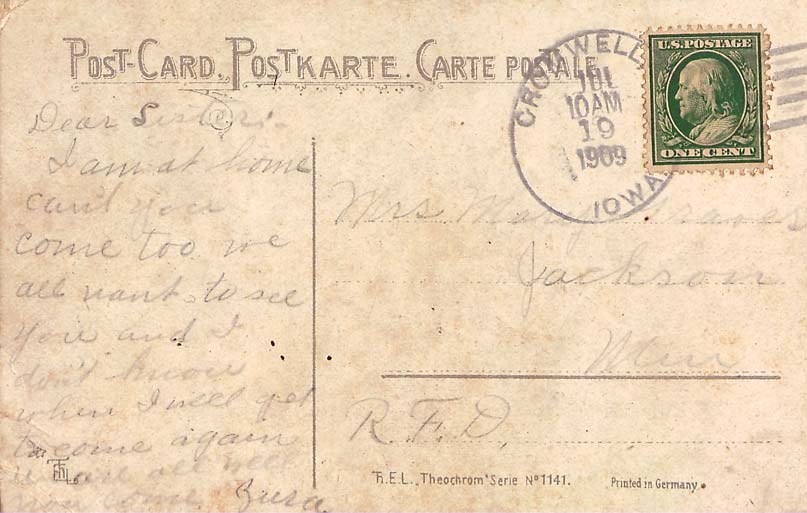 POST-CARD. POSTKARTE. CARTE POSTALE
CROMWELL
JUL
10 AM
19
1909
IOWA
U.S. POSTAGE
ONE CENT
Dear Sister:-
I am at home
can't you
come too we
all want to see
you and I
don't know
when I will get
to come again
we are all well
you come.
Mrs Mary Graves
Jackson
Minn
R.F.D.
Th.E.L. „Theochrom" Serie No 1141.
Printed in Germany